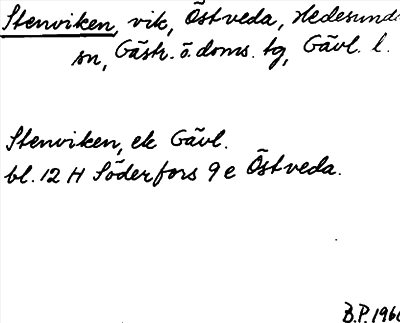 Stenviken, vik, Östveda, Hedesunda
sn, Gästr. ö. doms. tg, Gävl. l.
Stenviken, ek Gävl.
bl. 12 H Söderfors 9 e Östveda.
B.P. 1966